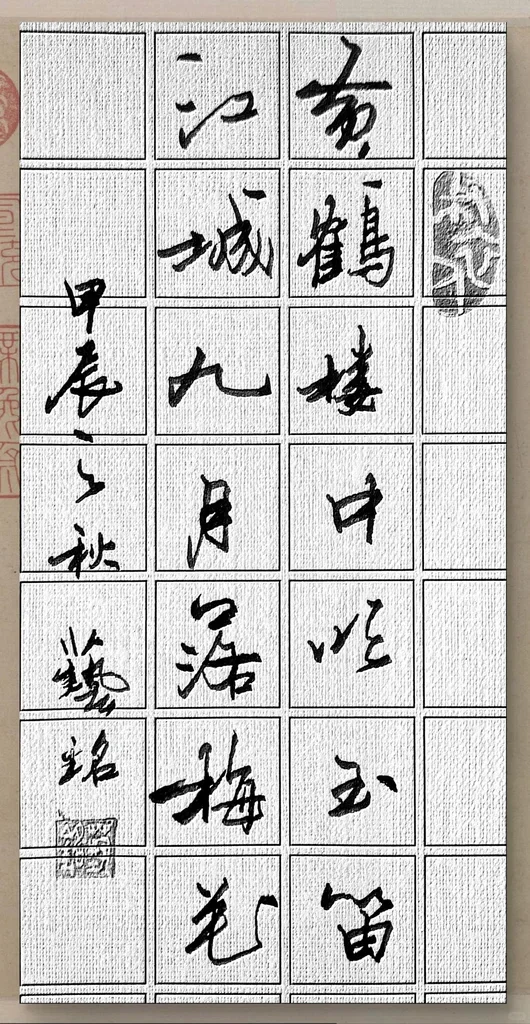 黄鶴楼中吹玉笛
江城九月落梅花
甲辰之秋 藝銘